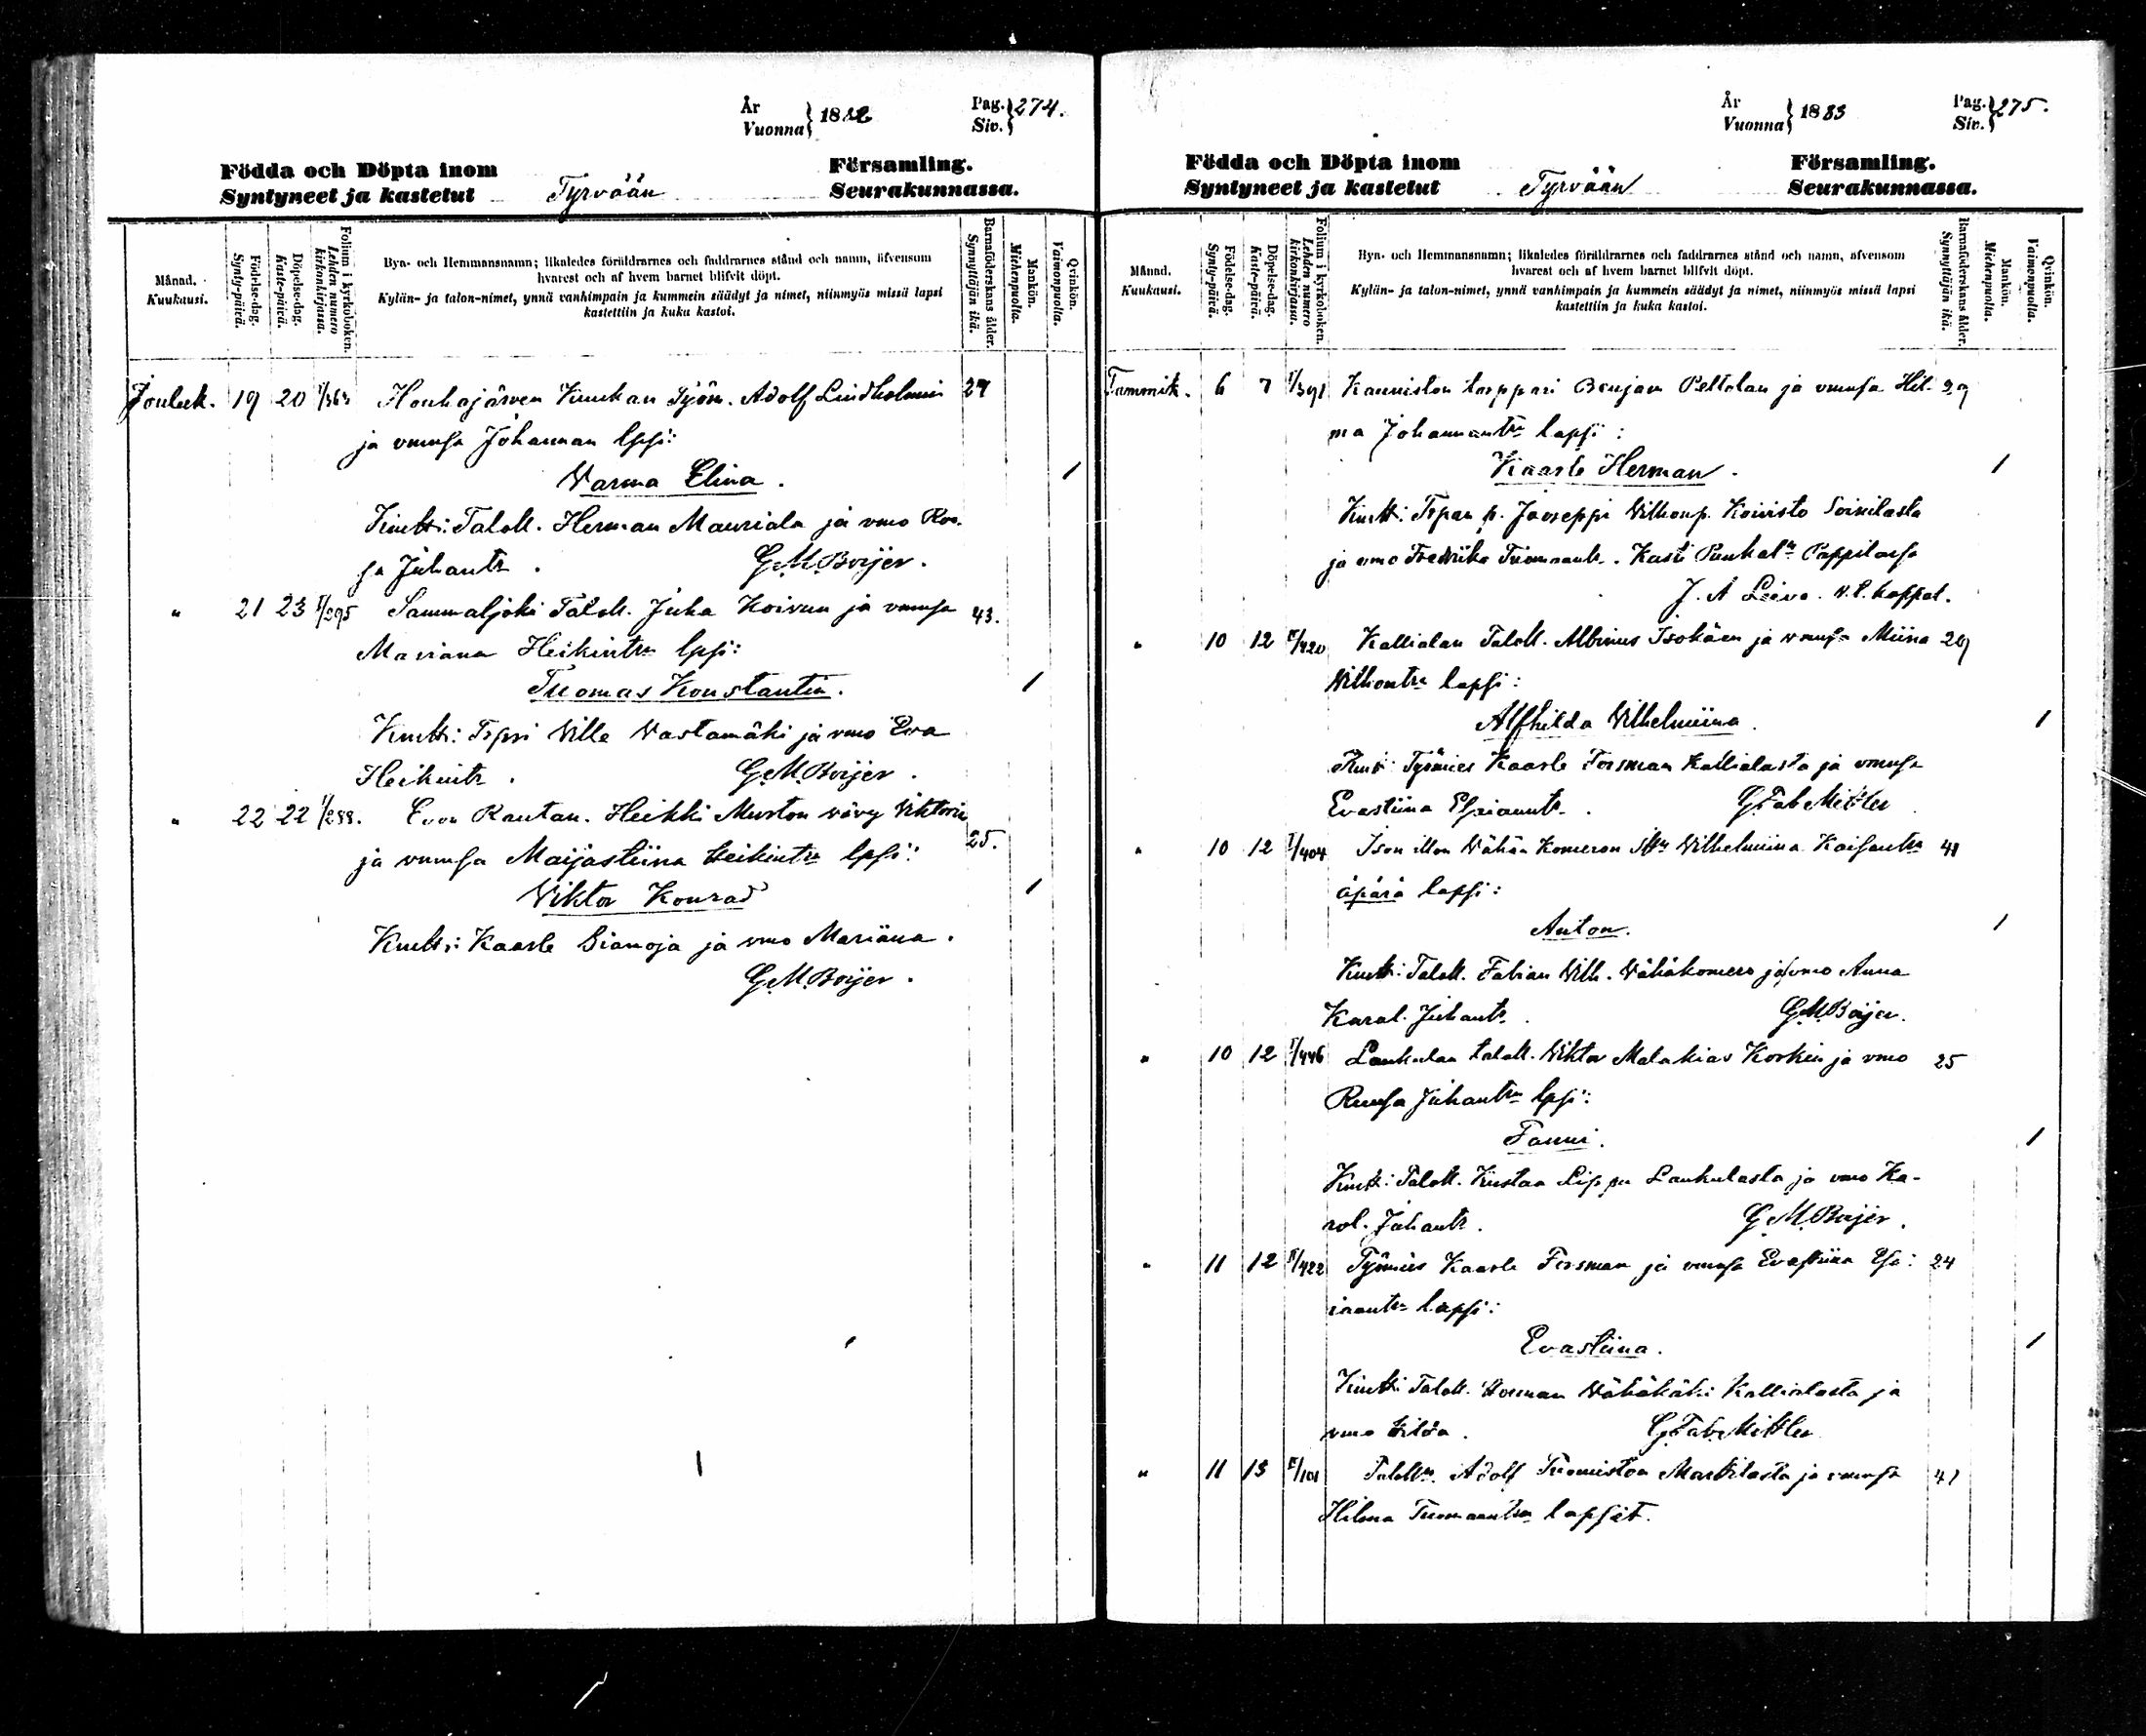 År
Vuonna } 1882
Pag.
Siv. } 274.
Födda och Döpta inom Församling.
Syntyneet ja kastetut Tyrvään Seurakunnassa.
Månad.
Kuukausi.
Födelse-dag.
Synty-päivä.
Döpelse-dag.
Kaste-päivä.
Folium i kyrkoboken.
Lehden numero
kirkonkirjassa.
Byn- och Hemmansnamn; likaledes föräldrarnes och faddrarnes stånd och namn, äfvensom
hvarest och af hvem barnet blifvit döpt.
Kylän- ja talon-nimet, ynnä vanhimpain ja kummein säädyt ja nimet, niinmyös missä lapsi
kastettiin ja kuka kastoi.
Barnaföderskans ålder.
Synnyttäjän ikä.
Mankön.
Miehenpuolia.
Qvinkön.
Vaimonpuolia.
Jouluk. 19 20 Houhajärven Kuukan Työm. Adolf Lindholmin 27
ja vmnsa Johannan lpsi:
Varma Elina. 1
Kmtt: Taloll. Herman Mauriala ja vmo Roo-
sa Juhantr. G.M. Boijer.
" 21 23 I/295 Sammaljoki Taloll. Juha Koivun ja vmnsa 43.
Mariana Heikintrn lpsi:
Tuomas Konstantin. 1
Kmtt: Trpri Ville Vastamäki ja vmo Eva
Heikintr. G.M. Boijer.
" 22 22 I/288. Evon Rautan. Heikki Murton vävy Viktorin 25.
ja vmnsa Maijastiina Heikintrn lpsi:
Viktor Konrad 1
Kmtt: Kaarle Sianoja ja vmo Mariana.
G.M. Boijer.
År
Vuonna } 1883
Pag.
Siv. } 275.
Födda och Döpta inom Församling.
Syntyneet ja kastetut Tyrvään Seurakunnassa.
Månad.
Kuukausi.
Födelse-dag.
Synty-päivä.
Döpelse-dag.
Kaste-päivä.
Folium i kyrkoboken.
Lehden numero
kirkonkirjassa.
Byn- och Hemmansnamn; likaledes föräldrarnes och faddrarnes stånd och namn, äfvensom
hvarest och af hvem barnet blifvit döpt.
Kylän- ja talon-nimet, ynnä vanhimpain ja kummein säädyt ja nimet, niinmyös missä lapsi
kastettiin ja kuka kastoi.
Barnaföderskans ålder.
Synnyttäjän ikä.
Mankön.
Miehenpuolia.
Qvinkön.
Vaimonpuolia.
Tammik. 6 7 I/391 Kanniston torppari Benjam Peltolan ja vmnsa Hil- 29
ma Johannantrn lapsi:
Kaarle Herman. 1
Kmtt: Trpan p. Jooseppi Vilhonp. Koivisto Soinilasta
ja vmo Fredriika Tuomaantr. Kasti Punkal:n Pappilassa
J. A Leivo. v. P. kappal.
" 10 12 /420 Kallialan Taloll. Albinus Isokäen ja vmnsa Miina 29
Vilhontrn lapsi:
Alfhilda Vilhelmiina. 1
Kmt: Työmies Kaarle Forsman Kallialasta ja vmnsa
Evastiina Esaiaantr. G. Fab. Mittler
" 10 12 I/404 Ison illon Vähän Komeron Itrn Vilhelmiina Kaisantrn 41
äpärä lapsi:
Anton. 1
Kmtt: Taloll. Fabian Vilh. Vähäkomero ja vmo Anna
Karol. Juhantr. G.M. Boijer.
" 10 12 I/446 Laukulan taloll. Viktor Malakias Korkin ja vmo 25
Ruusa Juhantrn lpsi:
Fanni. 1
Kmtt: Taloll. Kustaa Lippu Laukulasta ja vmo Ka-
rol. Juhantr. G.M. Boijer.
" 11 12 /422 Työmies Kaarle Forsman ja vmnsa Evastiina Esa: 24
iaantrn lapsi:
Evastiina. 1
Kmtt: Taloll. Herman Vähäkäki Kallialasta ja
vmo Hilda. G. Fab. Mittler
" 11 13 /101 Talolln. Adolf Tuomiston Marttilasta ja vmnsa 41
Hilma Tuomaantrn lapset.